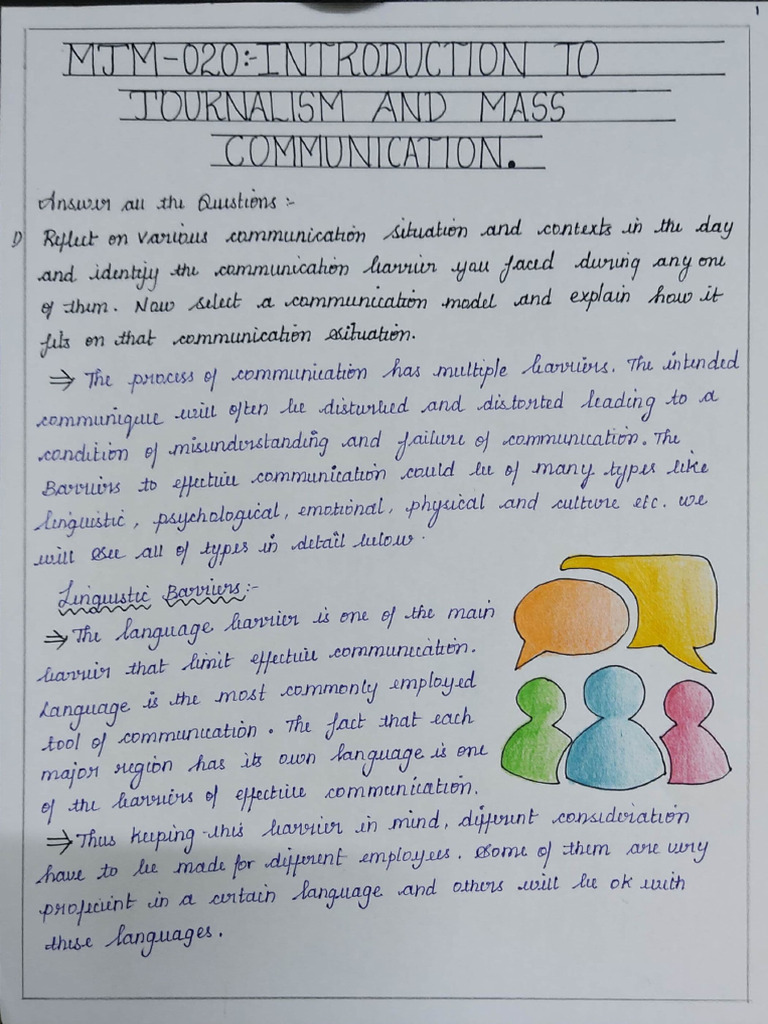 1
MJM-020:-INTRODUCTION TO
JOURNALISM AND MASS
COMMUNICATION.
Answer all the Questions :-
1) Reflect on various communication situation and contexts in the day
and identify the communication barrier you faced during any one
of them. Now select a communication model and explain how it
fits on that communication situation.
⇒ The process of communication has multiple barriers. The intended
communique will often be disturbed and distorted leading to a
condition of misunderstanding and failure of communication. The
Barriers to effective communication could be of many types like
linguistic, psychological, emotional, physical and culture etc. we
will see all of types in detail below.
Linguistic Barriers:-
⇒ The language barrier is one of the main
barrier that limit effective communication.
Language is the most commonly employed
tool of communication. The fact that each
major region has its own language is one
of the barriers of effective communication.
⇒ Thus keeping this barrier in mind, different consideration
have to be made for different employees. Some of them are very
proficient in a certain language and others will be ok with
these languages.